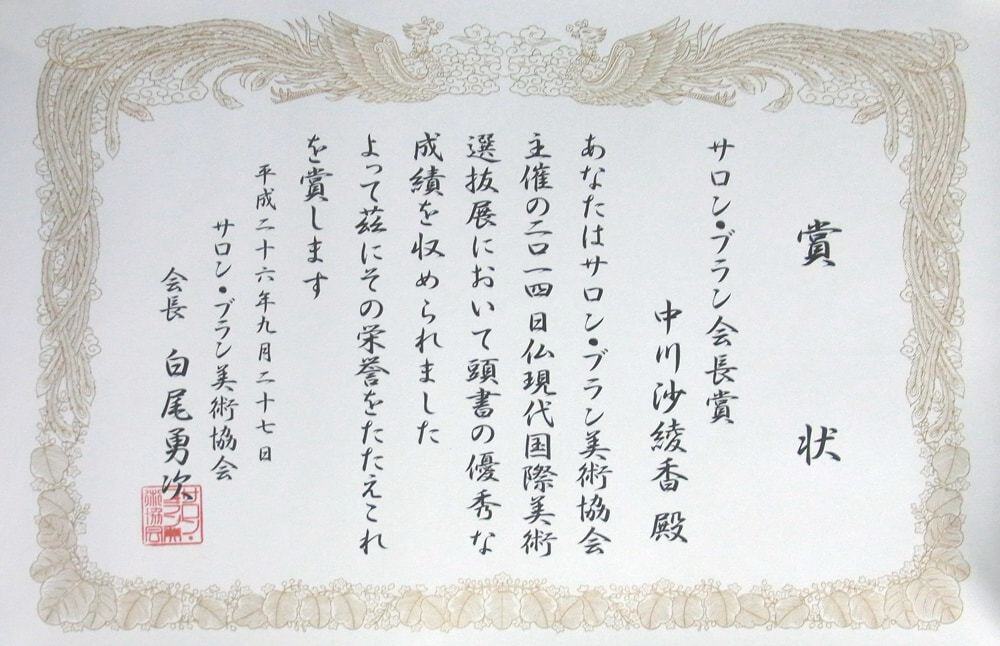 賞状
サロン・ブラン会長賞
中川沙綾香 殿
あなたはサロン・ブラン美術協会
主催の二〇一四日仏現代国際美術
選抜展において頭書の優秀な
成績を収められました
よって茲にその栄誉をたたえこれ
を賞します
平成二十六年九月二十七日
サロン・ブラン美術協会
会長 白尾勇次
サロン・
ブラン美
術協会